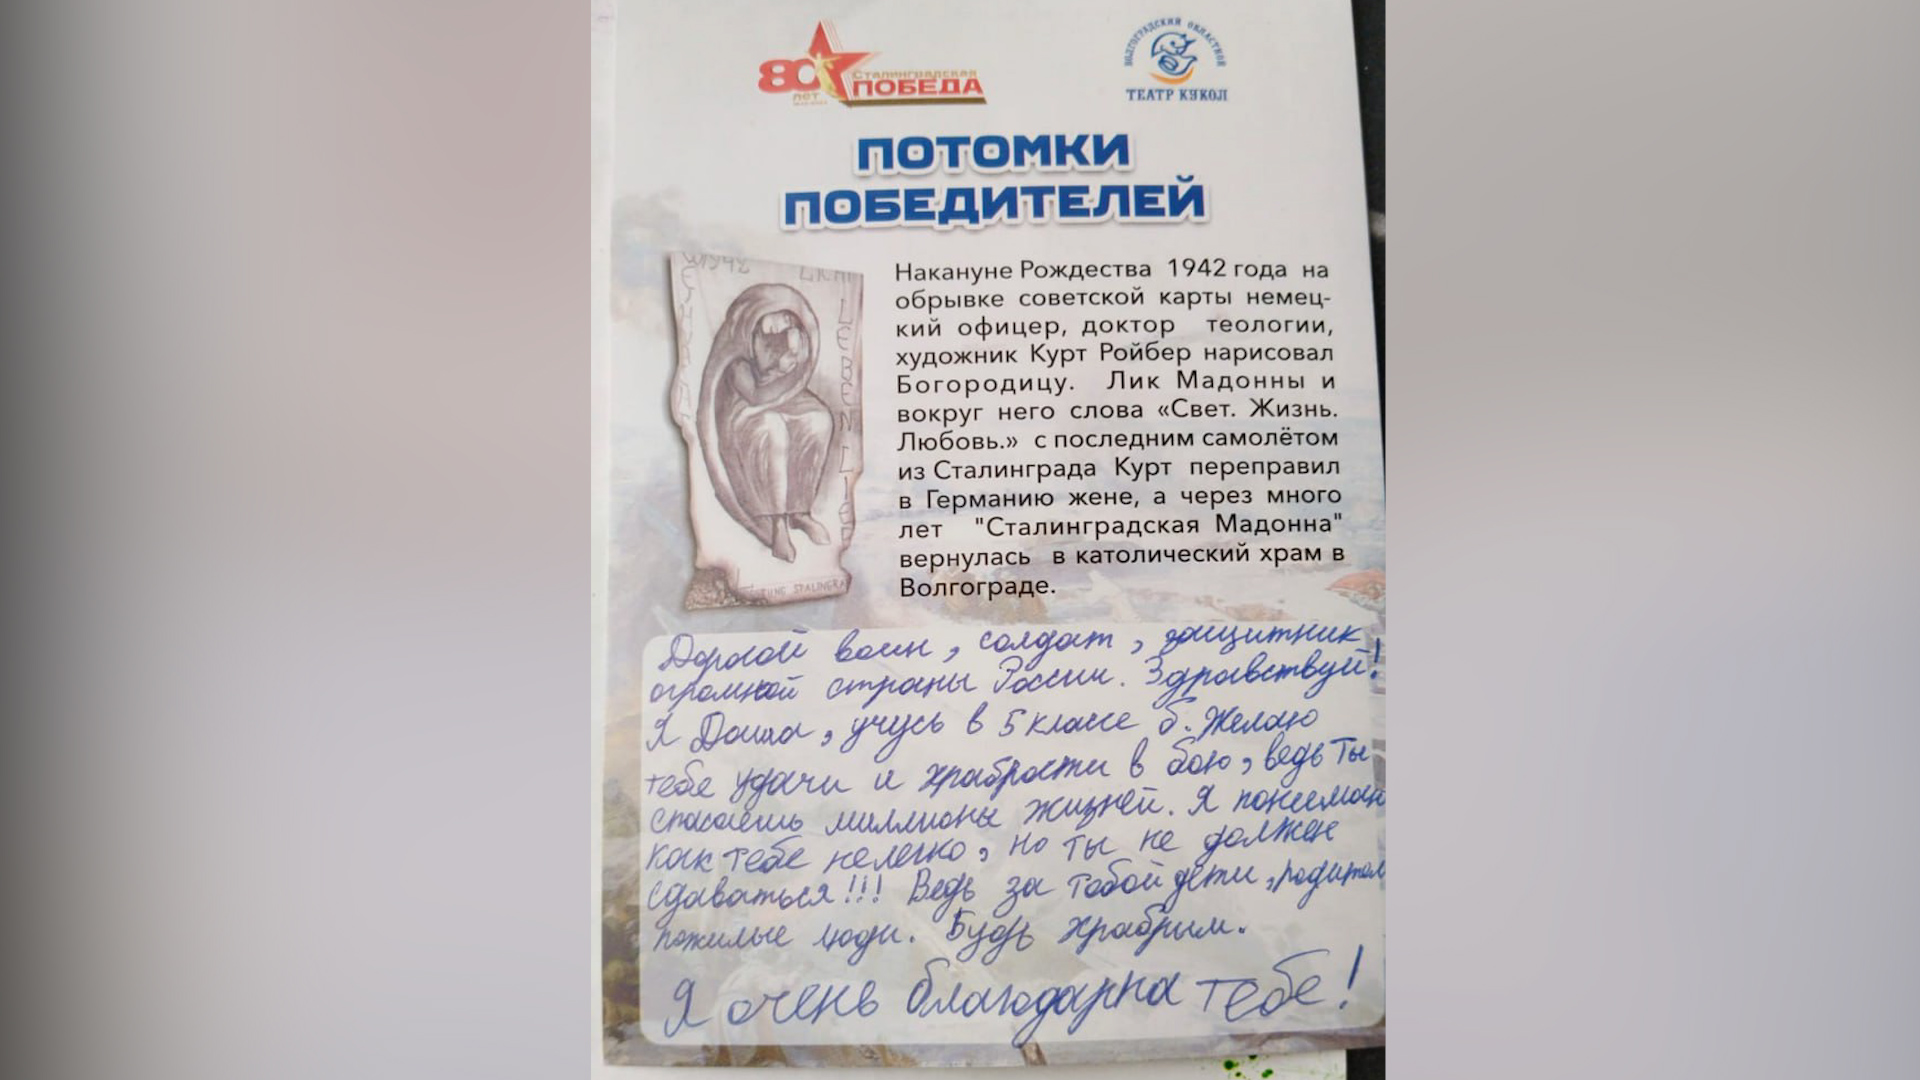 80
лет
Сталинградская
ПОБЕДА
ВОЛГОГРАДСКИЙ ОБЛАСТНОЙ
ТЕАТР КУКОЛ
ПОТОМКИ
ПОБЕДИТЕЛЕЙ
Накануне Рождества 1942 года на
обрывке советской карты немец-
кий офицер, доктор теологии,
художник Курт Ройбер нарисовал
Богородицу. Лик Мадонны и
вокруг него слова «Свет. Жизнь.
Любовь.» с последним самолётом
из Сталинграда Курт переправил
в Германию жене, а через много
лет "Сталинградская Мадонна"
вернулась в католический храм в
Волгограде.
LEBEN LIEB
STALINGRA
Дорогой воин, солдат, защитник
огромной страны России. Здравствуй!
Я Даша, учусь в 5 классе б. Желаю
тебе удачи и храбрости в бою, ведь ты
спасаешь миллионы жизней. Я понимаю
как тебе нелегко, но ты не должен
сдаваться!!! Ведь за тобой дети, родител
пожилые люди. Будь храбрым.
Я очень благодарна тебе!